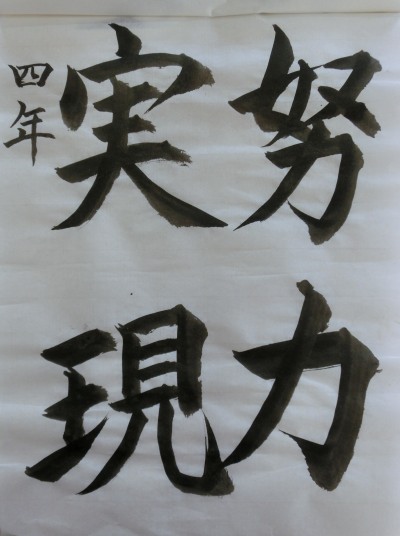 努力
実現
四年